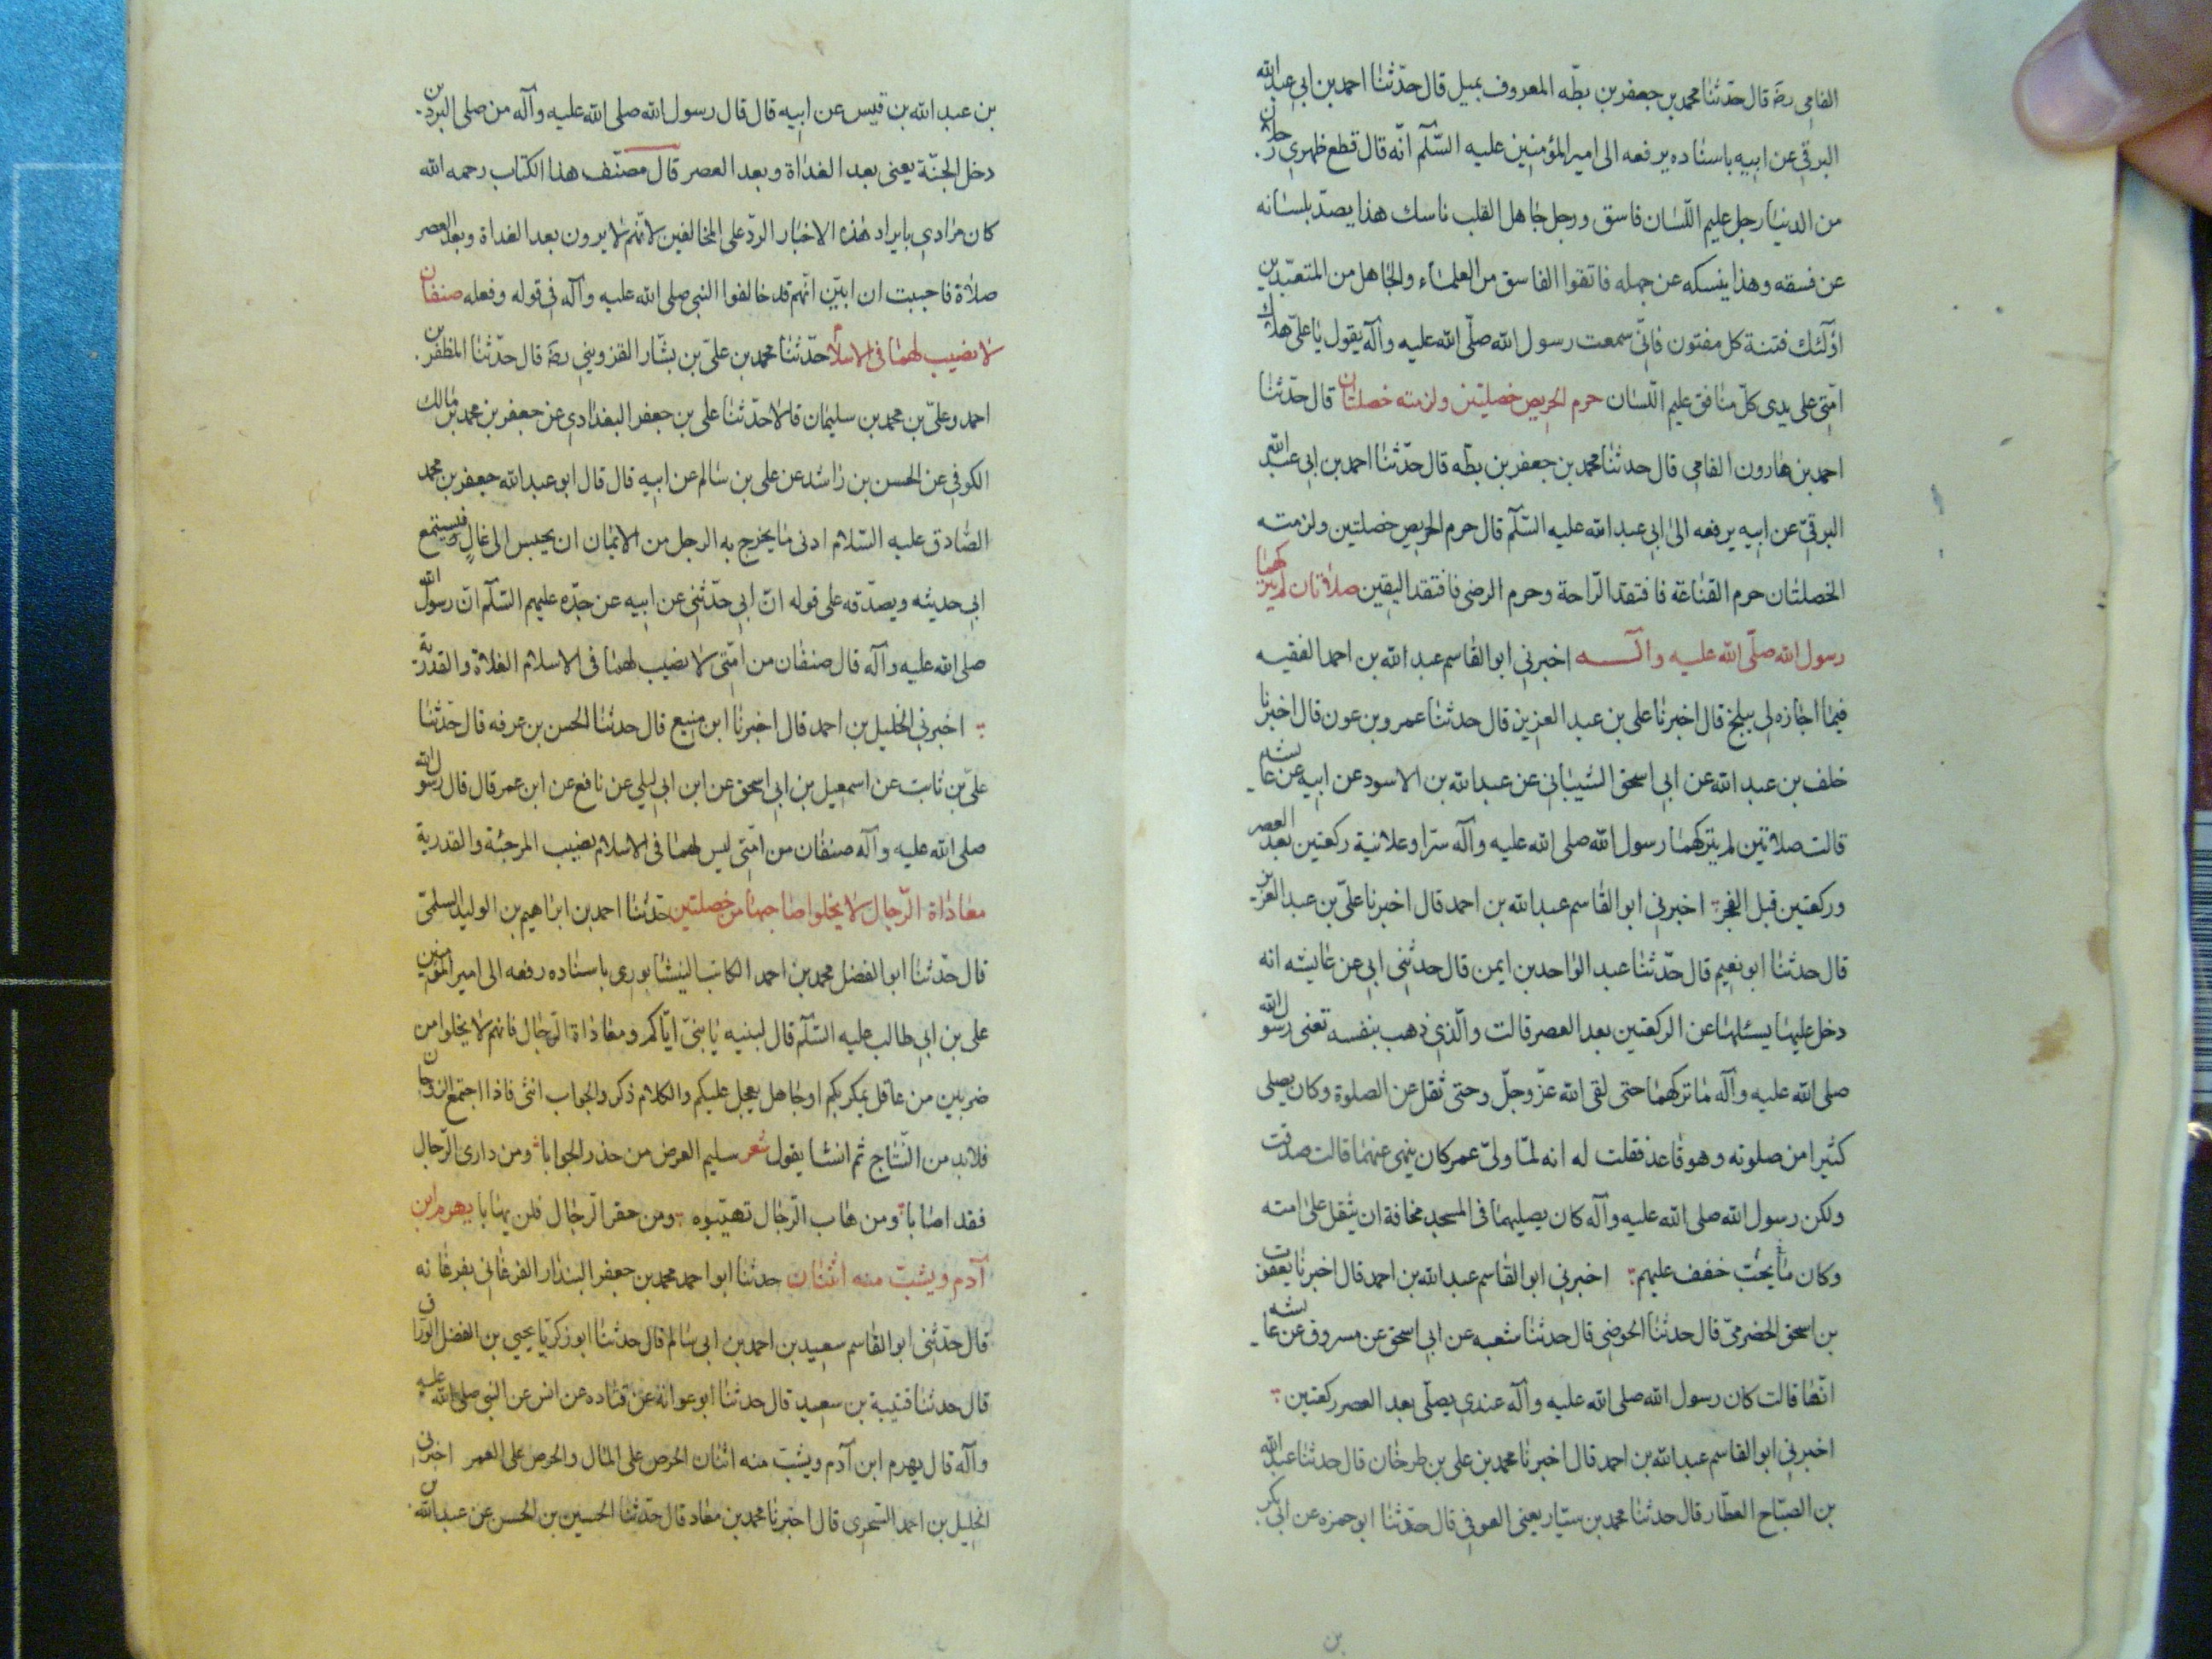 الفامي رضه قال حدّثنا محمد بن جعفر بن بطّه المعروف بميل قال حدّثنا احمد بن ابي عبد الله
البرقي عن ابيه باسناده يرفعه الى امير المؤمنين عليه السّلم انّه قال قطع ظهري رجلان
من الدنيا رجل عليم اللّسان فاسق ورجل جاهل القلب ناسك هذا يصدّ بلسانه
عن فسقه وهذا ينسكه عن جهله فاتقوا الفاسق من العلماء والجاهل من المتعبّدين
اولئك فتنة كل مفتون فانّي سمعت رسول الله صلّى الله عليه وآله يقول يا علي هلاك
امّتي على يدي كلّ منافق عليم اللّسان حرم الحريص خصلتين ولزمته خصلتان قال حدّثنا
احمد بن هارون الفامي قال حدثنا محمد بن جعفر بن بطّه قال حدّثنا احمد بن ابي عبد الله
البرقيّ عن ابيه يرفعه الى ابي عبد الله عليه السّلم قال حرم الحريص خصلتين ولزمته
الخصلتان حرم القناعة فافتقد الرّاحة وحرم الرضى فافتقد اليقين صلاتان لم يتركهما
رسول الله صلّى الله عليه وآلـــه اخبرني ابو القاسم عبد الله بن احمد الفقيه
فيما اجازه لي ببلخ قال اخبرنا علي بن عبد العزيز قال حدثنا عمرو بن عون قال اخبرنا
خلف بن عبد الله عن ابي اسحق الشيباني عن عبد الله بن الاسود عن ابيه عن عايشه
قالت صلاتين لم يتركهما رسول الله صلى الله عليه وآله سرّا وعلانية ركعتين بعد العصر
وركعتين قبل الفجر اخبرني ابو القاسم عبد الله بن احمد قال اخبرنا عليّ بن عبد العزيز
قال حدثنا ابو نعيم قال حدّثنا عبد الواحد بن ايمن قال حدثني ابي عن عايشه انه
دخل عليها يسئلها عن الركعتين بعد العصر قالت والّذي ذهب بنفسه تعني رسول الله
صلى الله عليه وآله ما تركهما حتى لقى الله عزّ وجلّ وحتى ثقل عن الصلوة وكان يصلي
كثيرا من صلوته وهو قاعد فقلت له انه لمّا ولّي عمر كان ينهى عنهما قالت صدقت
ولكن رسول الله صلى الله عليه وآله كان يصليهما في المسجد مخافة ان يثقل على امته
وكان ما يحبّ خفف عليهم اخبرني ابو القاسم عبد الله بن احمد قال اخبرنا يعقوب
بن اسحق الحضرميّ قال حدثنا الحوضي قال حدثنا شعبه عن ابي اسحق عن مسروق عن عايشه
انّها قالت كان رسول الله صلى الله عليه وآله عندي يصلّي بعد العصر ركعتين
اخبرني ابو القاسم عبد الله بن احمد قال اخبرنا محمد بن علي بن طرخان قال حدثنا عبد الله
بن الصبّاح العطّار قال حدثنا محمد بن سيّار يعني العوفي قال حدّثنا ابو حمزه عن ابي بكر
بن
بن عبد الله بن قيس عن ابيه قال قال رسول الله صلى الله عليه وآله من صلى البردين
دخل الجنّة يعني بعد الغداة وبعد العصر قال مصنّف هذا الكتاب رحمه الله
كان مرادي بايراد هذه الاخبار الردّ على المخالفين لانّهم لا يرون بعد الغداة وبعد العصر
صلاة فاحببت ان ابيّن انّهم قد خالفوا النبي صلى الله عليه وآله في قوله وفعله صنفان
لا نصيب لهما في الاسلام حدّثنا محمد بن عليّ بن بشّار القزويني رضه قال حدّثنا المظفر بن
احمد وعليّ بن محمد بن سليمان قالا حدّثنا علي بن جعفر البغدادي عن جعفر بن محمد بن مالك
الكوفي عن الحسن بن راشد عن علي بن سالم عن ابيه قال قال ابو عبد الله جعفر بن محمد
الصّادق عليه السّلام ادنى ما يخرج به الرجل من الايمان ان يجلس الى غالٍ فيستمع
الى حديثه ويصدّقه على قوله انّ ابي حدّثني عن ابيه عن جدّه عليهم السّلم انّ رسول الله
صلى الله عليه وآله قال صنفان من امّتي لا نصيب لهما في الاسلام الغلاة والقدريّة
اخبرني الخليل بن احمد قال اخبرنا ابن منيع قال حدثنا الحسن بن عرفه قال حدّثنا
عليّ بن ثابت عن اسمعيل بن ابي اسحق عن ابن ابي ليلي عن نافع عن ابن عمر قال قال رسول الله
صلى الله عليه وآله صنفان من امّتي ليس لهما في الاسلام نصيب المرجئة والقدرية
معاداة الرّجال لا يخلو صاحبها من خصلتين حدّثنا احمد بن ابراهيم بن الوليد السلميّ
قال حدّثنا ابو الفضل محمد بن احمد الكاتب النيشابوري باسناده رفعه الى امير المؤمنين
علي بن ابي طالب عليه السّلم قال لبنيه يا بنيّ ايّاكم ومعاداة الرّجال فانهم لا يخلوا من
ضربين من عاقل يمكر بكم او جاهل يعجل عليكم والكلام ذكر والجواب انثى فاذا اجتمع الزوجان
فلابد من النّتاج ثم انشا يقول شعر سليم العرض من حذر الجوابا ومن دارى الرّجال
فقد اصابا ومن هاب الرّجال تهيّبوه ومن حقر الرّجال فلن يهابا يهرم ابن
آدم ويشبّ منه اثنتان حدثنا ابو احمد محمد بن جعفر البندار الفرغاني بفرغانه
قال حدّثني ابو القاسم سعيد بن احمد بن ابي سالم قال حدثنا ابو زكريّا يحيى بن الفضل الورّاق
قال حدثنا قتيبة بن سعيد قال حدثنا ابو عوانة عن قتاده عن انس عن النبي صلى الله عليه
وآله قال يهرم ابن آدم ويشبّ منه اثنان الحرص على المال والحرص على العمر اخبرني
الخليل بن احمد السّجزي قال اخبرنا محمد بن معاد قال حدّثنا الحسين بن الحسن عن عبد الله بن